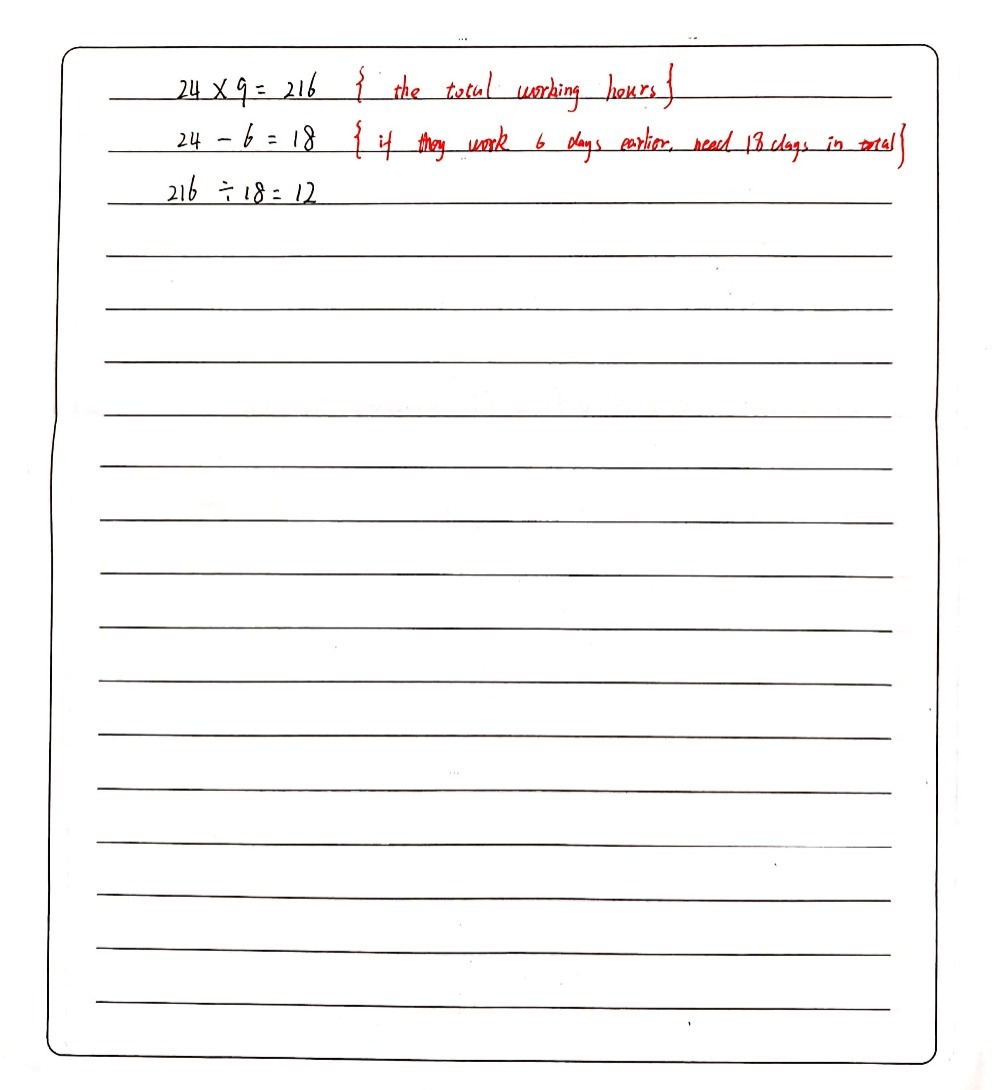 24 × 9 = 216 { the total working hours }
24 - 6 = 18 { if they work 6 days earlier, need 18 days in total }
216 ÷ 18 = 12